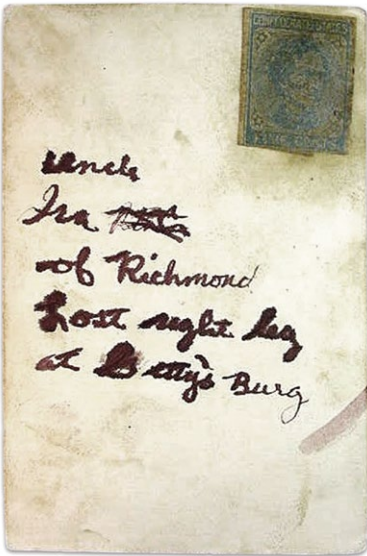 CONFEDERATE STATES
uncle
Ira
of Richmond
Lost right leg
at Gettys Burg